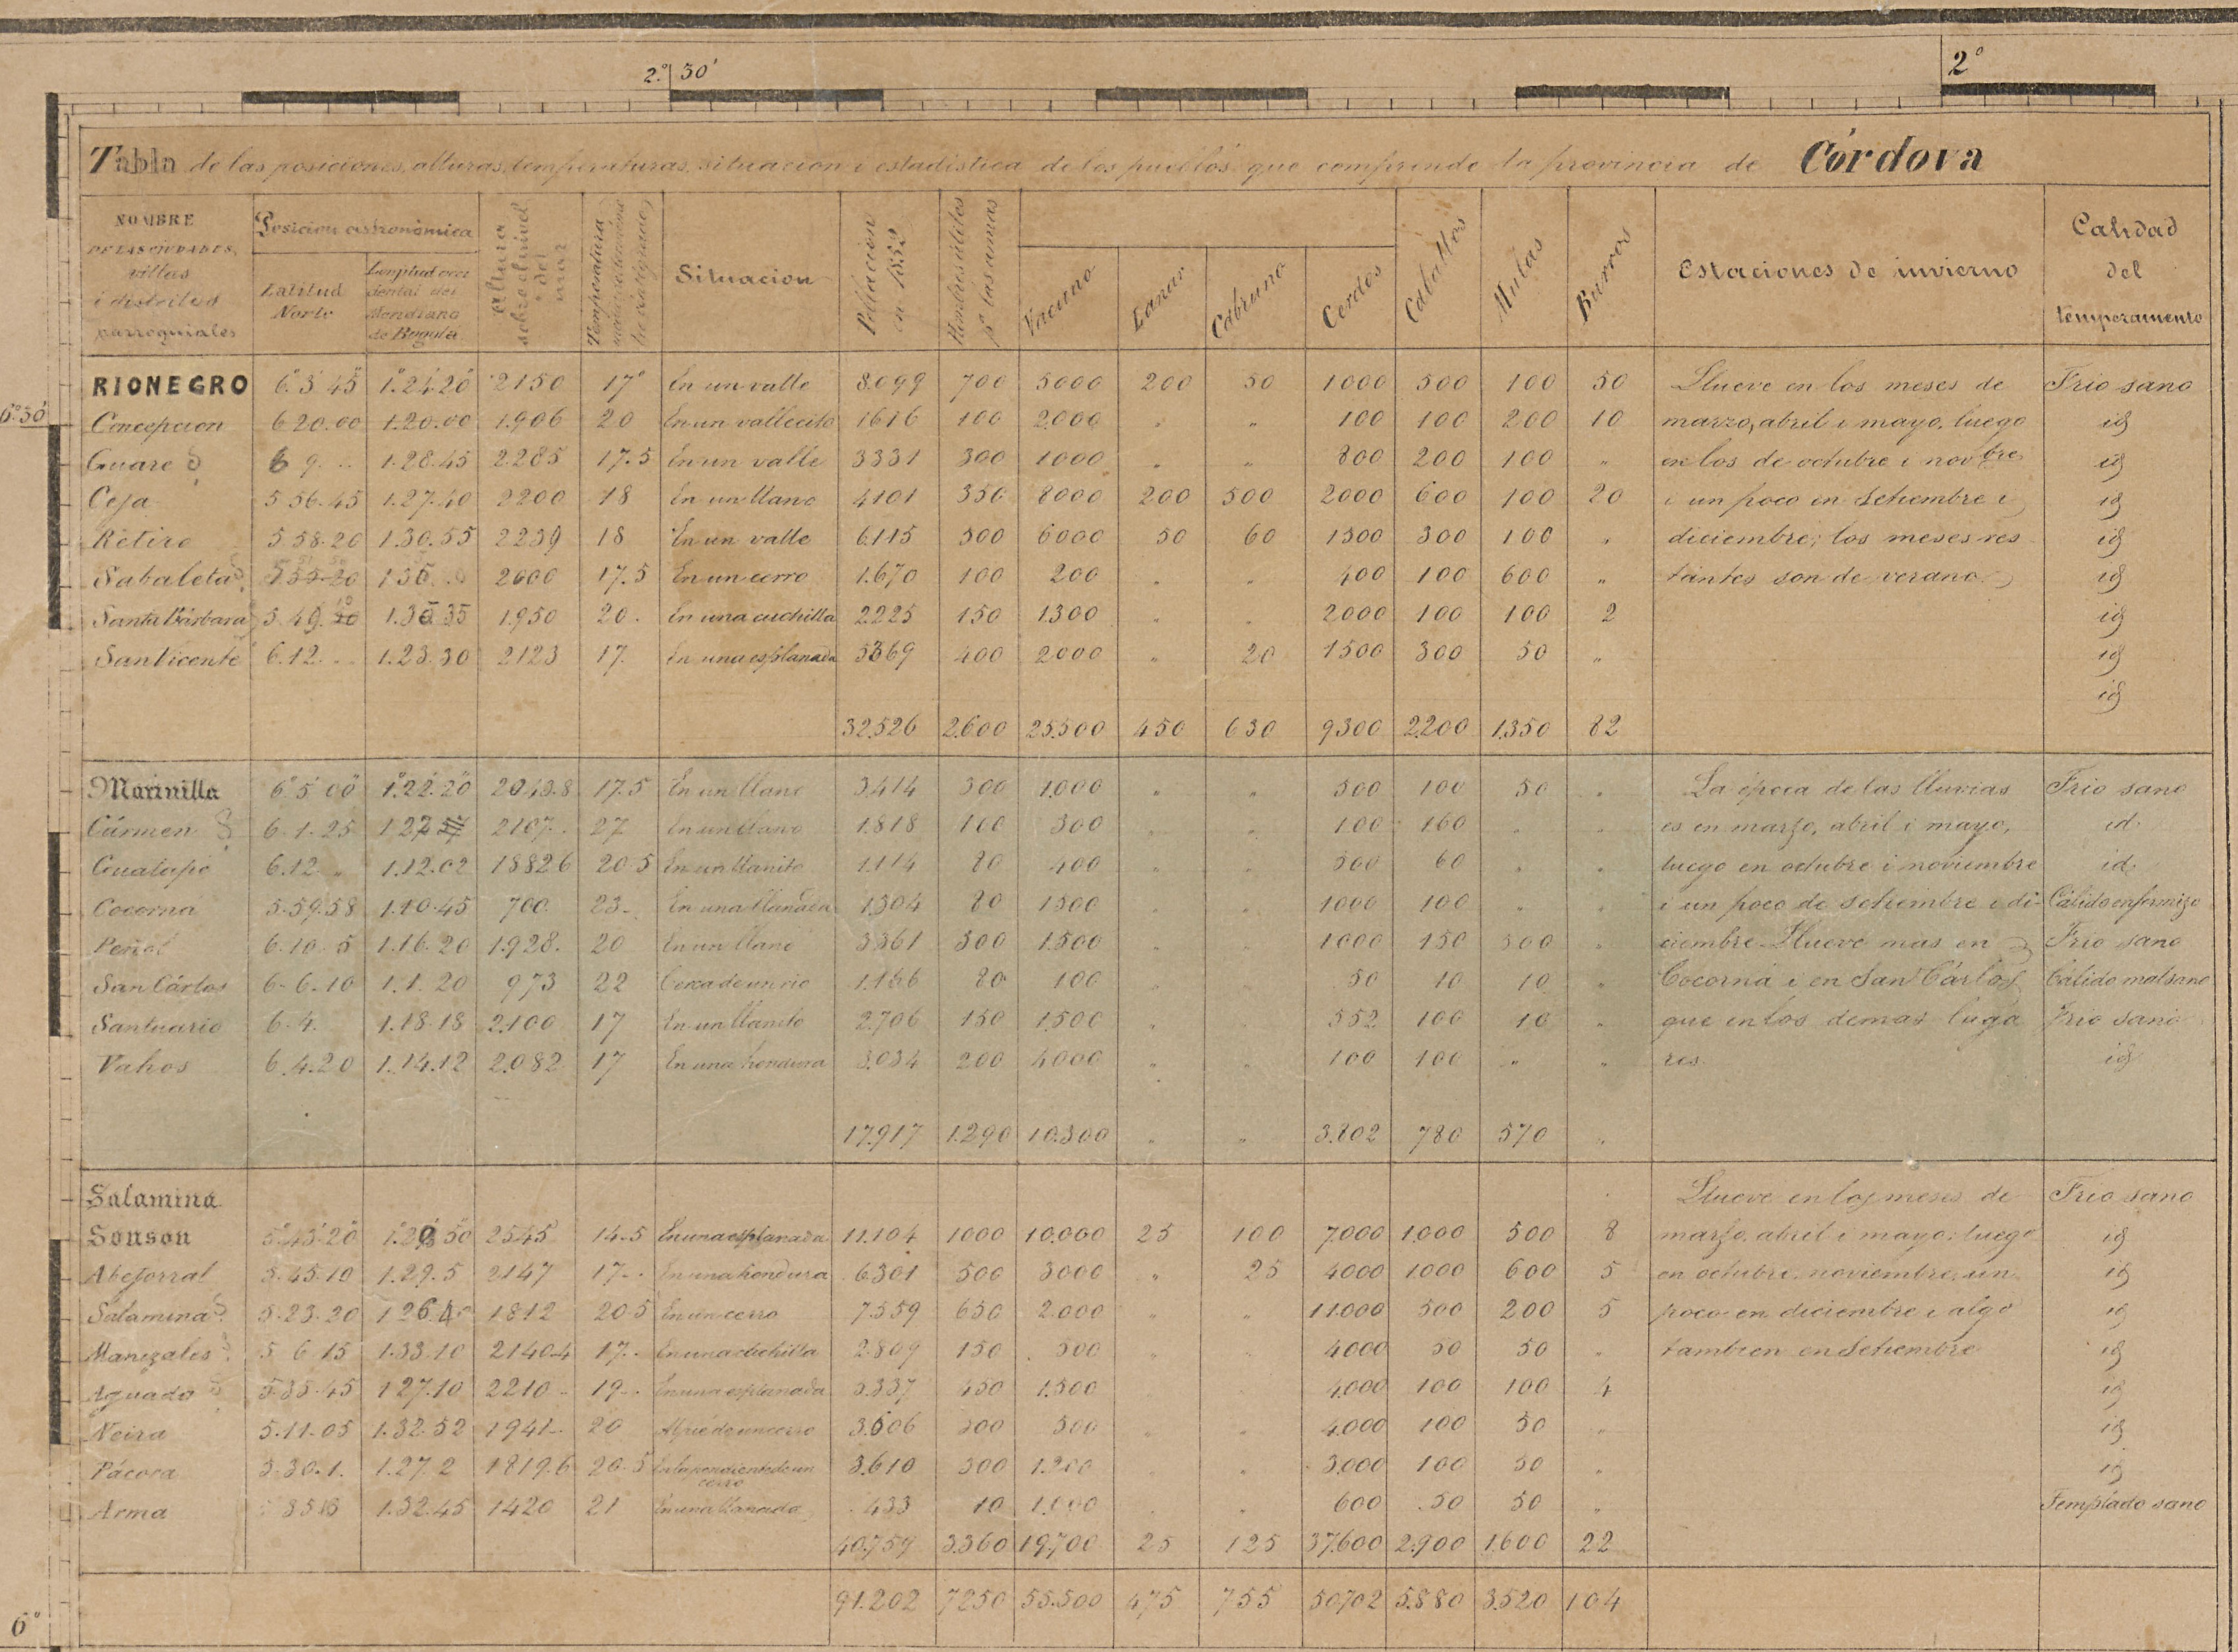 2.° 30'
2°
Tabla de las posiciones, alturas, temperaturas, situacion i estadistica de los pueblos que comprende la provincia de Córdova
NOMBRE DE LAS CIUDADES, villas i distritos parroquiales | Posicion astronómica | Latitud Norte | Lonjitud occidental del Meridiano de Bogotá | Altura sobre el nivel del mar | Temperatura | Situacion | Poblacion en 1852 | Hombres utiles pa las armas | Vacuno | Lanar | Cabruno | Cerdos | Caballos | Mulas | Burros | Estaciones de invierno | Calidad del temperamento
RIONEGRO 6.°3'45" 1.°24'20" 2150 17° En un valle 8.099 700 5000 200 50 1000 500 100 50 Llueve en los meses de Frio sano
6°30'
Concepcion 6 20.00 1.20.00 1.906 20 En un vallecito 1616 100 2.000 " " 100 100 200 10 marzo, abril i mayo, luego id
Guare 6 9. .. 1.28.45 2.285 17.5 En un valle 3331 300 1000 " " 800 200 100 " en los de octubre i novbre id
Ceja 5 56.45 1.27.40 2200 18 En un llano 4101 350 8000 200 500 2000 600 100 20 i un poco en Setiembre i id
Retiro 5 58.20 1.30.55 2239 18 En un valle 6.115 500 6000 50 60 1500 300 100 " diciembre; los meses res id
Sabaleta 2000 17.5 En un cerro 1.670 100 200 " " 400 100 600 " tantes son de verano id
Santa Bárbara 5.49. 1.36 35 1.950 20. En una cuchilla 2225 150 1300 " " 2000 100 100 2 id
San Vicente 6.12. .. 1.23.30 2123 17. En una esplanada 5369 400 2000 " 20 1500 300 50 " id
id
32.526 2.600 25.500 450 630 9300 2.200 1.350 82
Marinilla 6.°5'00" 1.°22'20" 2043.8 17.5 En un llano 3.414 300 1.000 " " 500 100 50 " La época de las lluvias Frio sano
Cármen 6.1.25 1.27 2107. 27 En un llano 1.818 100 300 " " 100 160 " " es en marzo, abril i mayo, id.
Guatapé 6.12 " 1.12.02 1882.6 20.5 En un llanito 1.114 80 400 " " 500 60 " " luego en octubre i noviembre id.
Cocorná 5.59.58 1.10.45 700. 23.. En una llanada 1.304 80 1500 " " 1000 100 " " i un poco de Setiembre i di- Cálido enfermizo
Peñol 6.10.5 1.16.20 1.928. 20 En un llano 3.361 300 1.500 1000 150 500 " ciembre. Llueve mas en Frio sano
San Cárlos 6.6.10 1.1.20 973 22 Cerca de un rio 1.166 80 100 50 10 10 " Cocorná i en San Cárlos Cálido malsano
Santuario 6.4. 1.18.18 2.100 17 En un llanito 2.706 150 1.500 552 100 10 " que en los demas luga Frio sano
Vahos 6.4.20 1.14.12 2.082 17 En una hondura 3.034 200 4000 " " 100 100 " " res. id
17.917 1.290 10.300 " " 3.802 780 570 "
Salamina Llueve en los meses de Frio sano
Sonson 5.°43'20" 2545 14.5 En una esplanada 11.104 1000 10.000 25 100 7.000 1.000 500 8 marzo, abril i mayo; luego id
Abejorral 5.45.10 1.29.5 2147 17.. En una hondura 6.301 500 3000 " 25 4000 1.000 600 5 en octubre, noviembre, un id
Salamina 5.23.20 1 26.40 1812 20 5 En un cerro 7.559 650 2.000 " " 11.000 500 200 5 poco en diciembre i algo id
Manizales 5 6 15 1.33.10 2140.4 17.. En una cuchilla 2.809 150 500 " " 4000 50 50 " tambien en Setiembre id
Aguada 5.35.45 1 27.10 2210.. 19.. En una esplanada 5.337 450 1.500 4.000 100 100 4 id
Neira 5.11.05 1.32.52 1941.. 20 Al pie de un cerro 3.606 300 500 " " 4.000 100 50 " id
Pácora 5.30.1. 1.27.2 1819.6 20.5 En la pendiente de un cerro 3.610 300 1.200 " " 3.000 100 50 " id
Arma 1.32.45 1420 21 En una llanada 433 10 1.000 " " 600 50 50 " Templado sano
40.759 3.360 19.700 25 125 37.600 2.900 1.600 22
91.202 7250 55.500 475 755 50702 5.880 3.520 104
6°